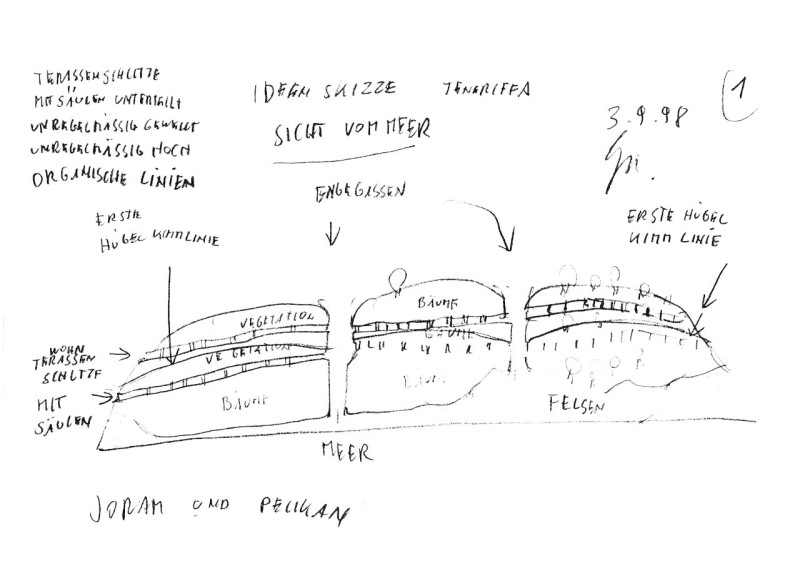 TERASSENSCHLITZE
MIT SÄULEN UNTERTEILT
UNREGELMÄSSIG GEWELLT
UNREGELMÄSSIG HOCH
ORGANISCHE LINIEN
IDEEN SKIZZE TENERIFFA
SICHT VOM MEER
3.9.98
1
ENGE GASSEN
ERSTE
HÜGEL KIMMLINIE
ERSTE HÜGEL
KIMM LINIE
BÄUME
VEGETATION
BÄUME
VEGETATION
WOHN
TERASSEN
SCHLITZE
MIT
SÄULEN
BÄUME
BÄUME
FELSEN
MEER
JORAM UND PELIKAN